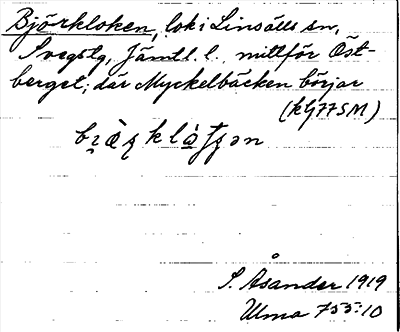 Björkloken, lok i Linsälls sn,
Svegstg, Jämtl. l., mittför Öst-
berget; där Myckelbäcken börjar
(kG77SM)
S. Åsander 1919
Ulma 755:10